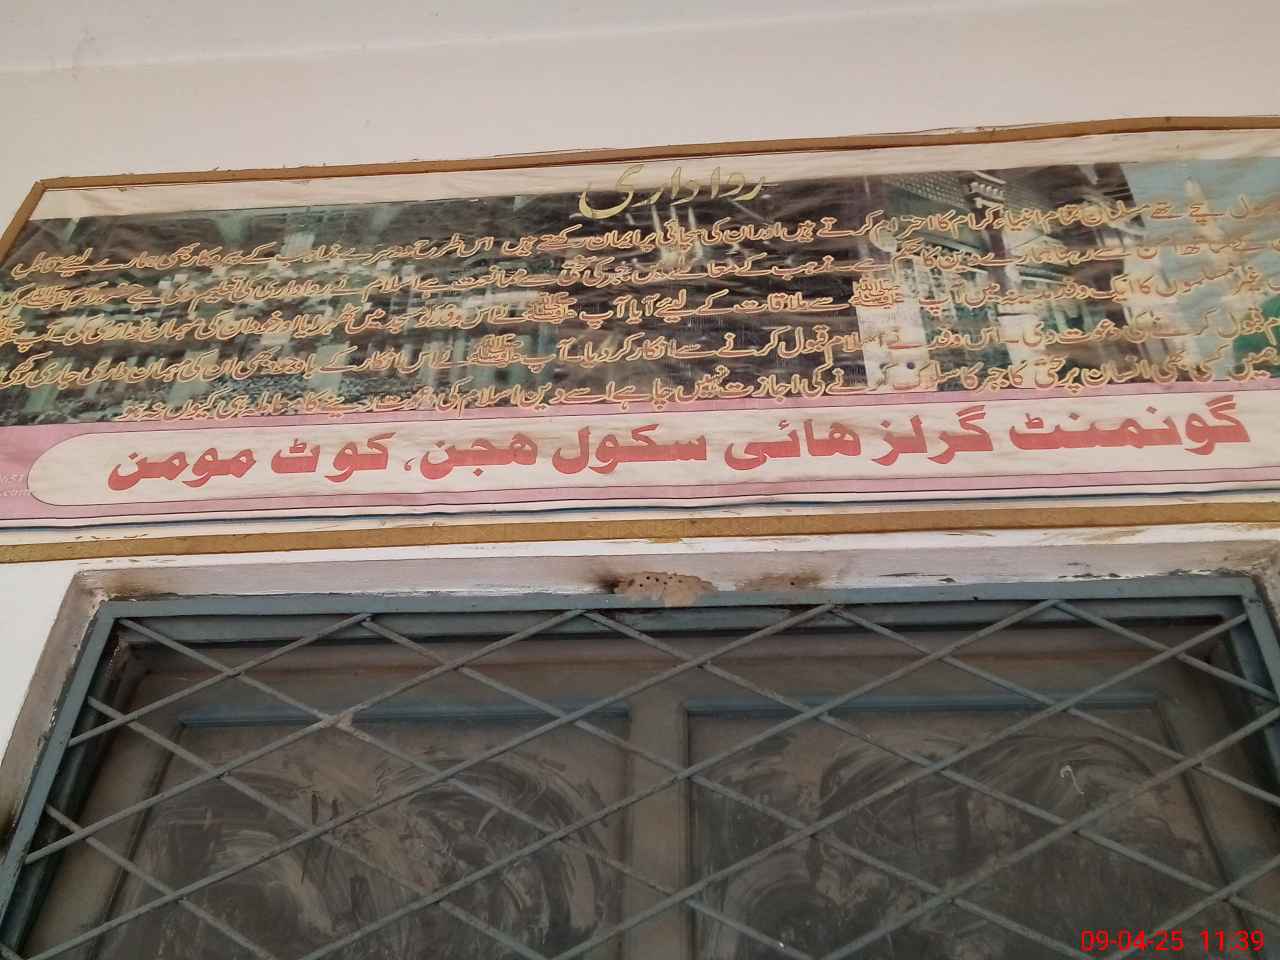 رواداری
تمام انبیاء کرام کا احترام کرتے ہیں اور ان کی سچائی پر ایمان رکھتے ہیں اس طرح دوسرے مذاہب کے پیروکار بھی ہمارے لیے
مذہب کے معاملے میں زبردستی کی ممانعت ہے اسلام نے رواداری کی تعلیم دی ہے حضور اکرم ﷺ
غیر مسلموں کا ایک وفد مدینہ میں آپ ﷺ سے ملاقات کے لیئے آیا آپ ﷺ نے اس وفد کو مسجد میں ٹھہرایا اور خود ان کی مہمان نوازی کی آپ
قبول کرنے کی دعوت دی۔ اس وفد نے اسلام قبول کرنے سے انکار کر دیا۔ آپ ﷺ نے اس انکار کے باوجود بھی ان کی مہمان نوازی جاری رکھی
میں کسی بھی انسان پر حتیٰ کہ جبر کا سلوک کرنے کی اجازت نہیں چاہے اسے دین اسلام کی دعوت دینے کا معاملہ ہی کیوں نہ ہو
گونمنٹ گرلز ھائی سکول ھجن، کوٹ مومن
09-04-25 11:39